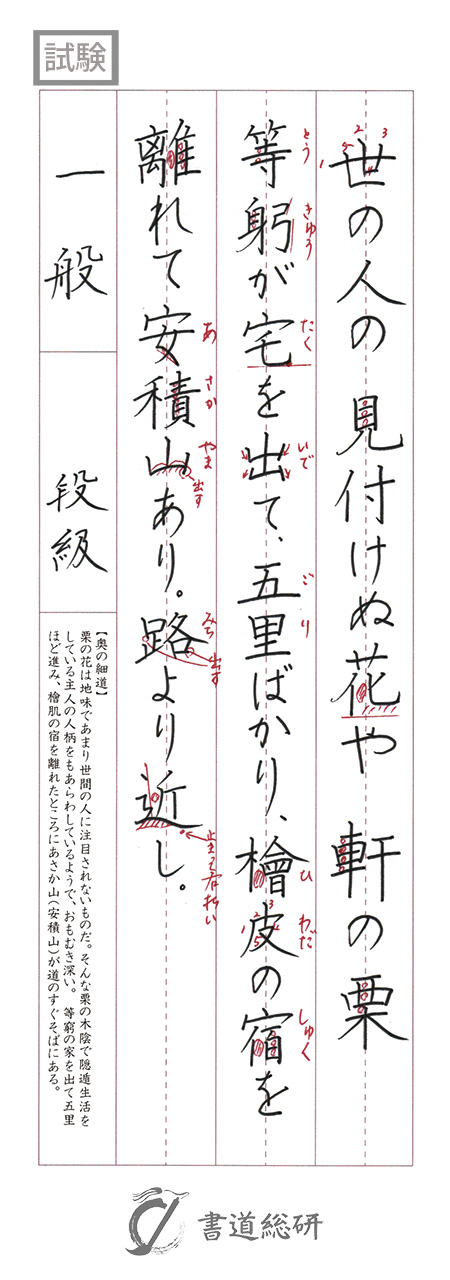 試験
世の人の 見付けぬ花や 軒の栗
等躬が宅を出て、五里ばかり、檜皮の宿を
とう きゅう たく いで ごり ひ わだ しゅく
離れて安積山あり。路より近し。
あ さか やま 出す みち 出す 止まって右払い
一般 段級
【奥の細道】
栗の花は地味であまり世間の人に注目されないものだ。そんな栗の木陰で隠遁生活を
している主人の人柄をもあらわしているようで、おもむき深い。 等窮の家を出て五里
ほど進み、檜肌の宿を離れたところにあさか山(安積山)が道のすぐそばにある。
書道総研